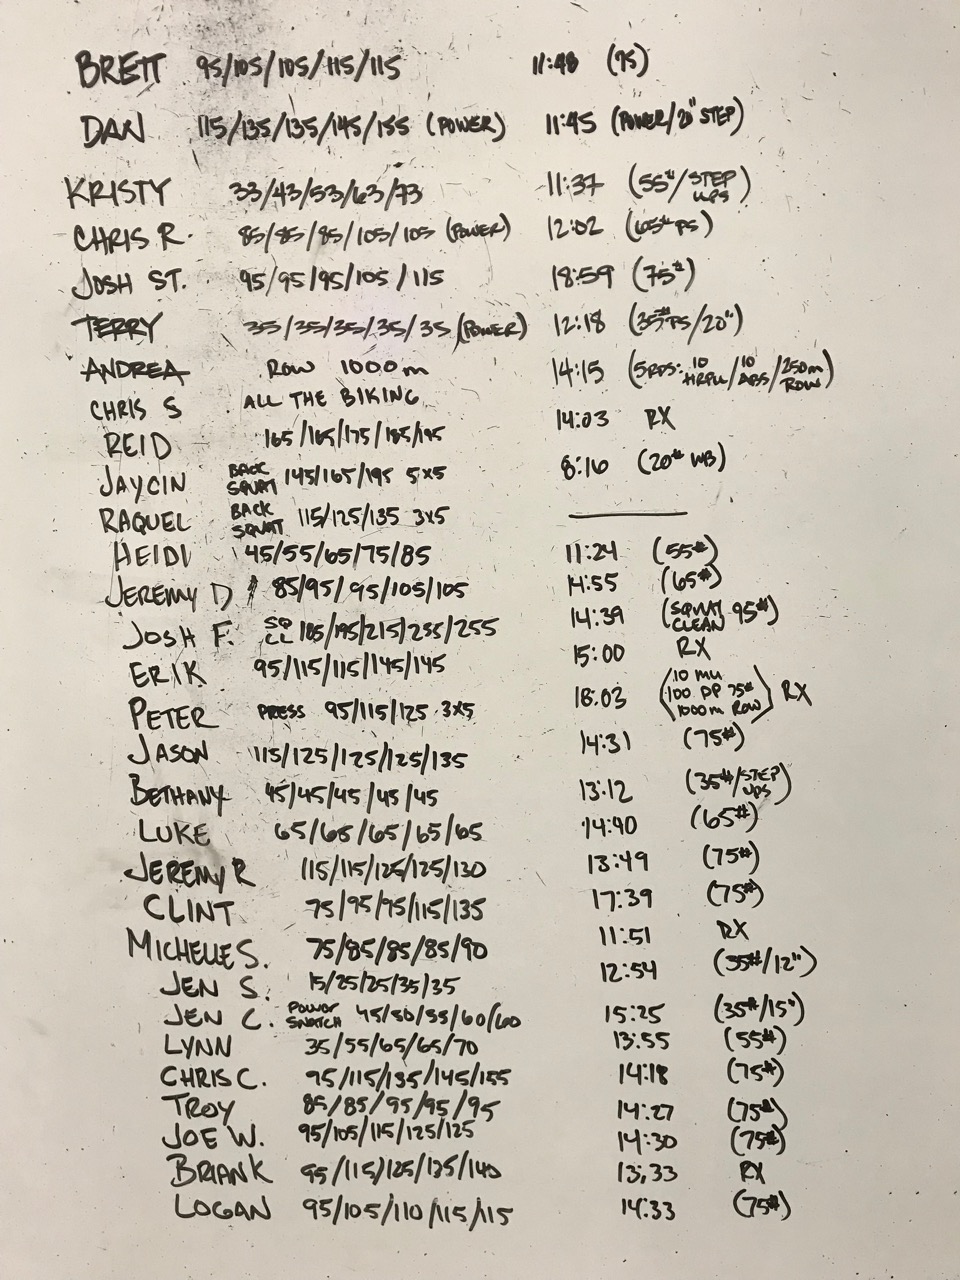 BRETT 95/105/105/115/115 11:48 (75)
DAN 115/135/135/145/155 (POWER) 11:45 (POWER/20" STEP)
KRISTY 33/43/53/63/73 11:37 (55#/STEP UPS)
CHRIS R. 85/85/85/105/105 (POWER) 12:02 (65# PS)
JOSH ST. 95/95/95/105/115 18:59 (75#)
TERRY 35/35/35/35/35 (POWER) 12:18 (35# PS/20")
ANDREA ROW 1000m 14:15 (5RDS: 10 HRPU/10 ABS/250m ROW)
CHRIS S ALL THE BIKING 14:03 RX
REID 165/165/175/185/195
JAYCIN BACK SQUAT 145/165/195 5x5 8:16 (20# WB)
RAQUEL BACK SQUAT 115/125/135 3x5
HEIDI 45/55/65/75/85 11:24 (55#)
JEREMY D 85/95/95/105/105 14:55 (65#)
JOSH F. SQ CL 185/195/215/235/255 14:39 (SQUAT CLEAN 95#)
ERIK 95/115/115/145/145 15:00 RX
PETER PRESS 95/115/125 3x5 18:03 (10 MU 100 PP 75# 1000m ROW) RX
JASON 115/125/125/125/135 14:31 (75#)
BETHANY 45/45/45/45/45 13:12 (35#/STEP UPS)
LUKE 65/65/65/65/65 14:40 (65#)
JEREMY R 115/115/125/125/130 13:49 (75#)
CLINT 75/95/95/115/135 17:39 (75#)
MICHELLE S. 75/85/85/85/90 11:51 RX
JEN S. 15/25/25/35/35 12:54 (35#/12")
JEN C. POWER SNATCH 45/50/55/60/60 15:25 (35#/15")
LYNN 35/55/65/65/70 13:55 (55#)
CHRIS C. 95/115/135/145/155 14:18 (75#)
TROY 85/85/95/95/95 14:27 (75#)
JOE W. 95/105/115/125/125 14:30 (75#)
BRIAN K 95/115/125/135/140 13:33 RX
LOGAN 95/105/110/115/115 14:33 (75#)